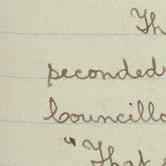 Th
seconded
Councillo
"That